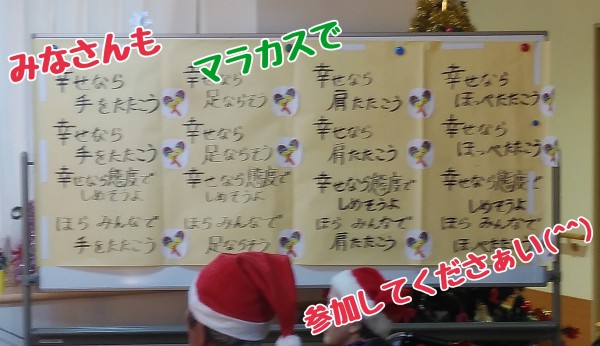 みなさんも
マラカスで
幸せなら
手をたたこう
幸せなら
手をたたこう
幸せなら態度で
しめそうよ
ほら みんなで
手をたたこう
幸せなら
足ならそう
幸せなら
足ならそう
幸せなら態度で
しめそうよ
ほら みんなで
足ならそう
幸せなら
肩たたこう
幸せなら
肩たたこう
幸せなら態度で
しめそうよ
ほら みんなで
肩たたこう
幸せなら
ほっぺたたこう
幸せなら
ほっぺたたこう
幸せなら態度で
しめそうよ
ほら みんなで
ほっぺたたこう
参加してくださぁい(^^)